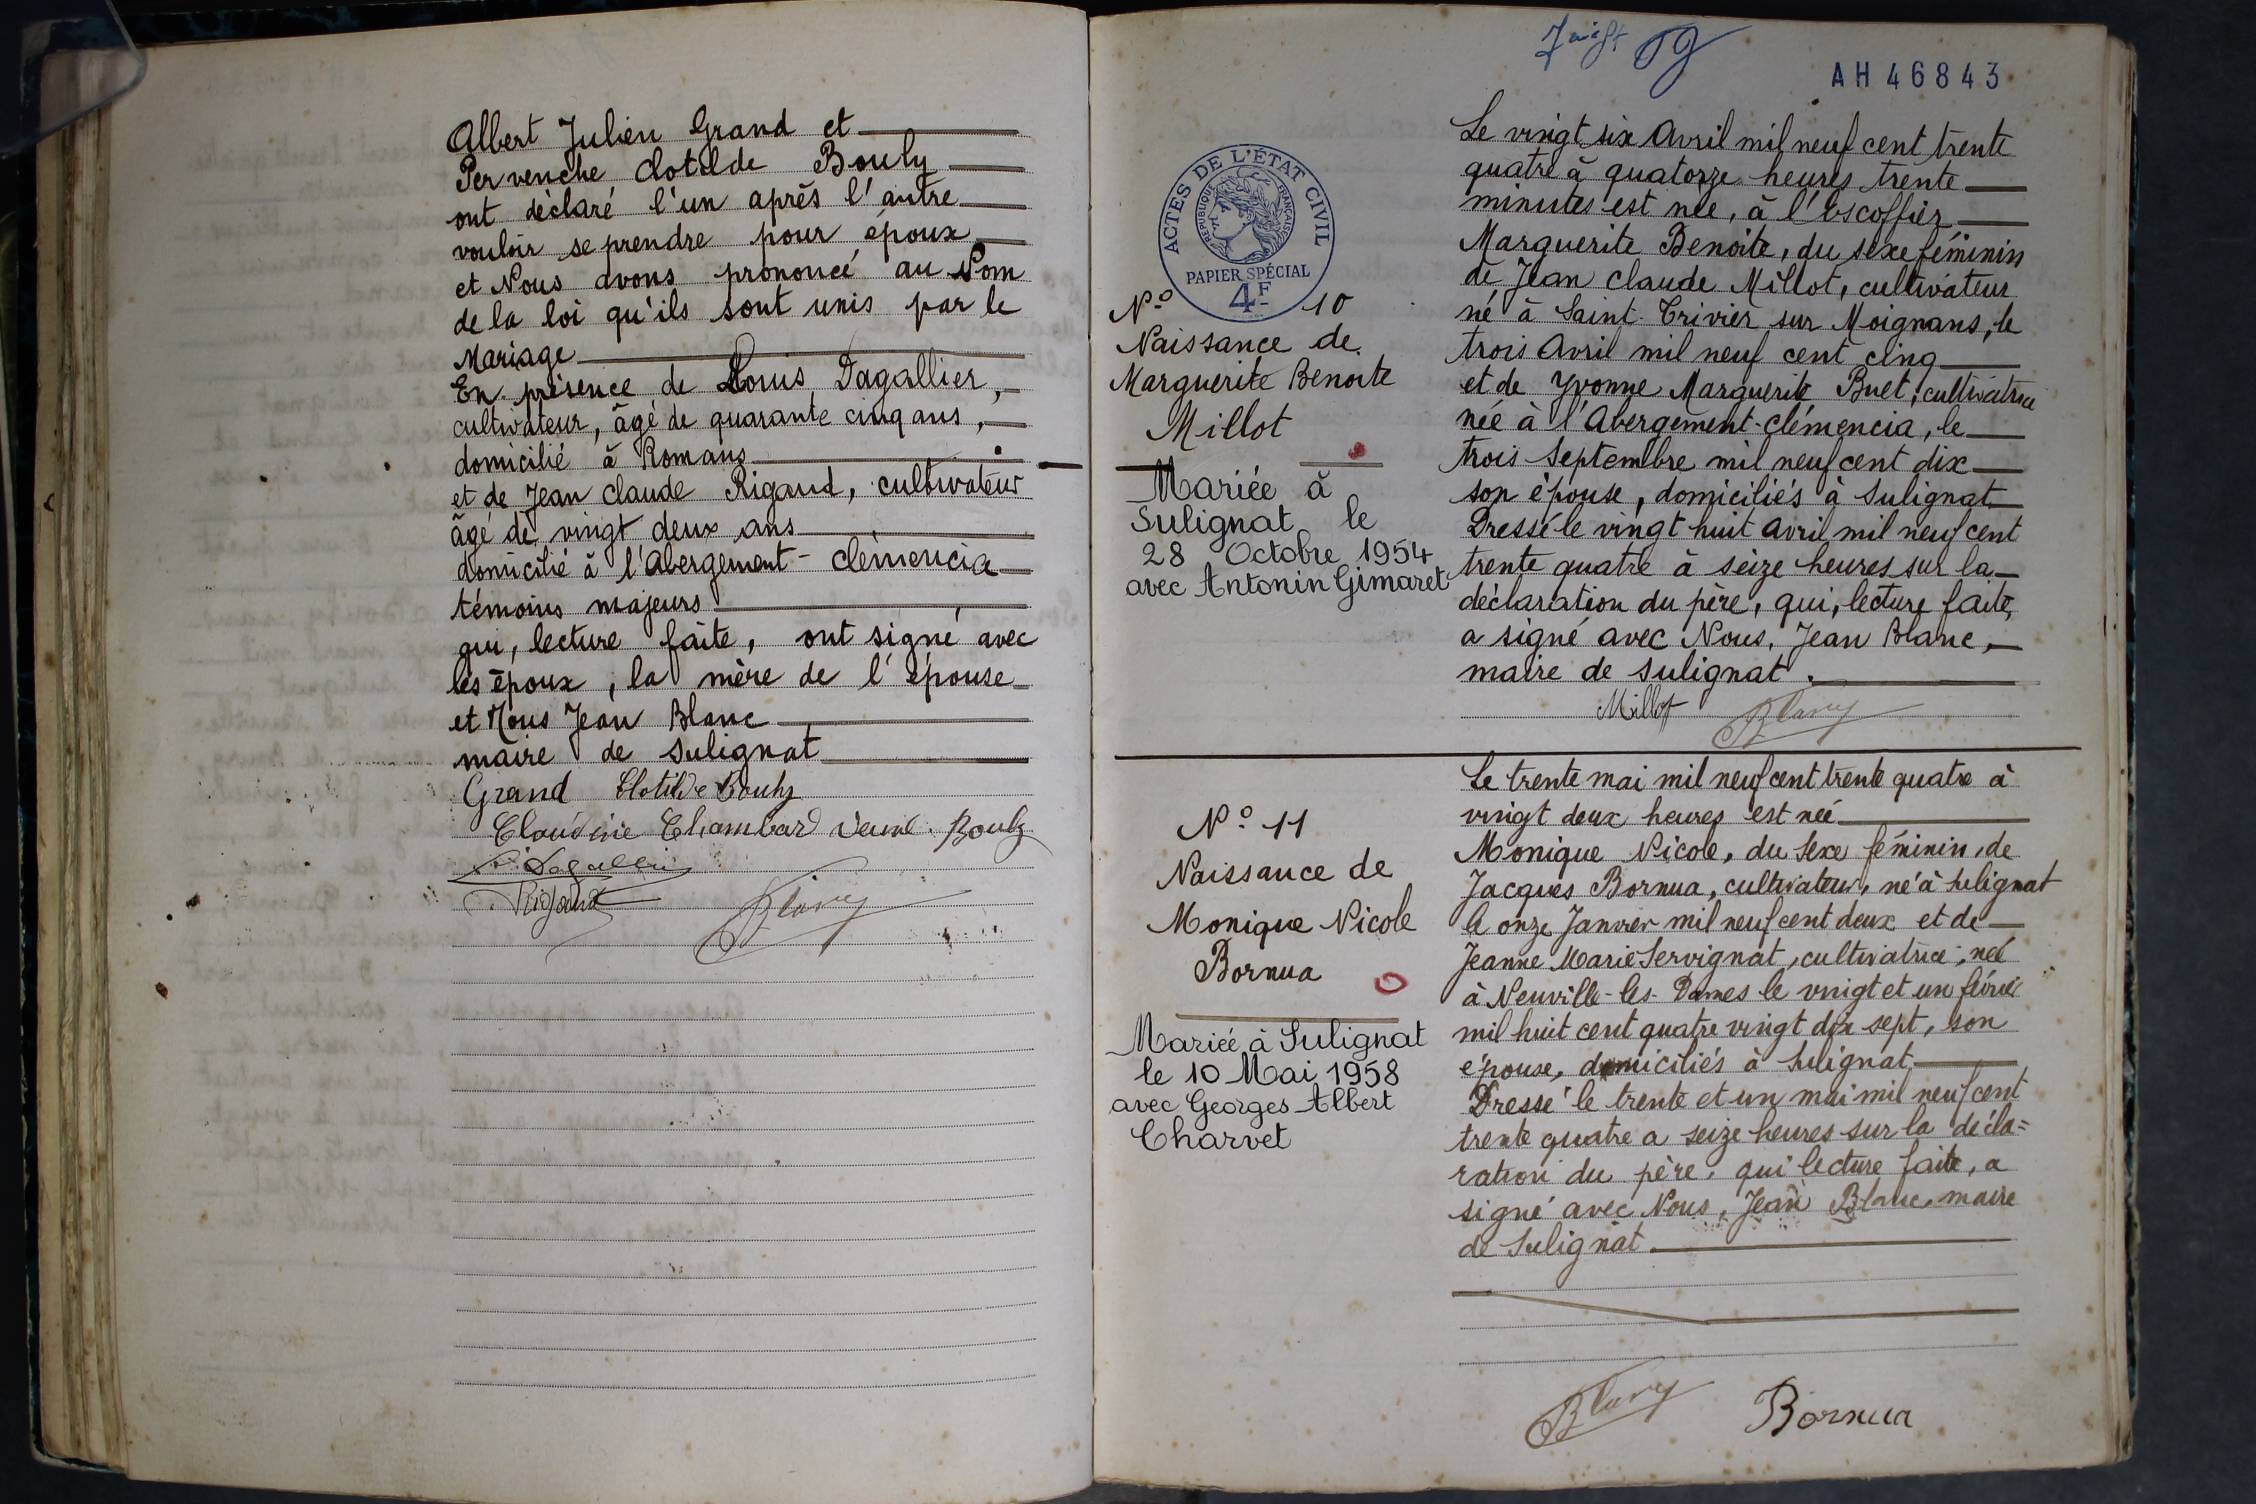 Albert Julien Grand et
Pervenche Clotilde Bouly
ont déclaré l'un après l'autre
vouloir se prendre pour époux
et Nous avons prononcé au Nom
de la loi qu'ils sont unis par le
Mariage
En présence de Louis Dagallier,
cultivateur, âgé de quarante cinq ans,
domicilié à Romans
et de Jean Claude Rigaud, cultivateur
âgé de vingt deux ans
domicilié à l'Abergement-Clémencia
témoins majeurs
qui, lecture faite, ont signé avec
les époux, la mère de l'épouse
et Nous Jean Blanc
maire de Sulignat
Grand Clotilde Bouly
Claudine Chambard veuve Bouly
Dagallier
Rigaud
Blanc
AH46843
ACTES DE L'ÉTAT CIVIL
RÉPUBLIQUE FRANÇAISE
PAPIER SPÉCIAL
4F
N° 10
Naissance de
Marguerite Benoite
Millot
Mariée à
Sulignat le
28 Octobre 1954
avec Antonin Gimaret
Le vingt six Avril mil neuf cent trente
quatre à quatorze heures trente
minutes est née, à l'Escoffier
Marguerite Benoite, du sexe féminin
de Jean Claude Millot, cultivateur
né à Saint-Trivier sur Moignans, le
trois Avril mil neuf cent cinq
et de Yvonne Marguerite Buet, cultivatrice
née à l'Abergement-Clémencia, le
trois Septembre mil neuf cent dix
son épouse, domiciliés à Sulignat
Dressé le vingt huit Avril mil neuf cent
trente quatre à seize heures sur la
déclaration du père, qui, lecture faite,
a signé avec Nous, Jean Blanc,
maire de Sulignat.
Millot Blanc
N° 11
Naissance de
Monique Nicole
Bornua
Mariée à Sulignat
le 10 Mai 1958
avec Georges Albert
Charvet
Le trente mai mil neuf cent trente quatre à
vingt deux heures est née
Monique Nicole, du sexe féminin, de
Jacques Bornua, cultivateur, né à Sulignat
le onze Janvier mil neuf cent deux et de
Jeanne Marie Servignat, cultivatrice, née
à Neuville-les-Dames le vingt et un février
mil huit cent quatre vingt dix sept, son
épouse, domiciliés à Sulignat
Dressé le trente et un mai mil neuf cent
trente quatre a seize heures sur la décla=
ration du père, qui lecture faite, a
signé avec Nous, Jean Blanc, maire
de Sulignat.
Blanc Bornua